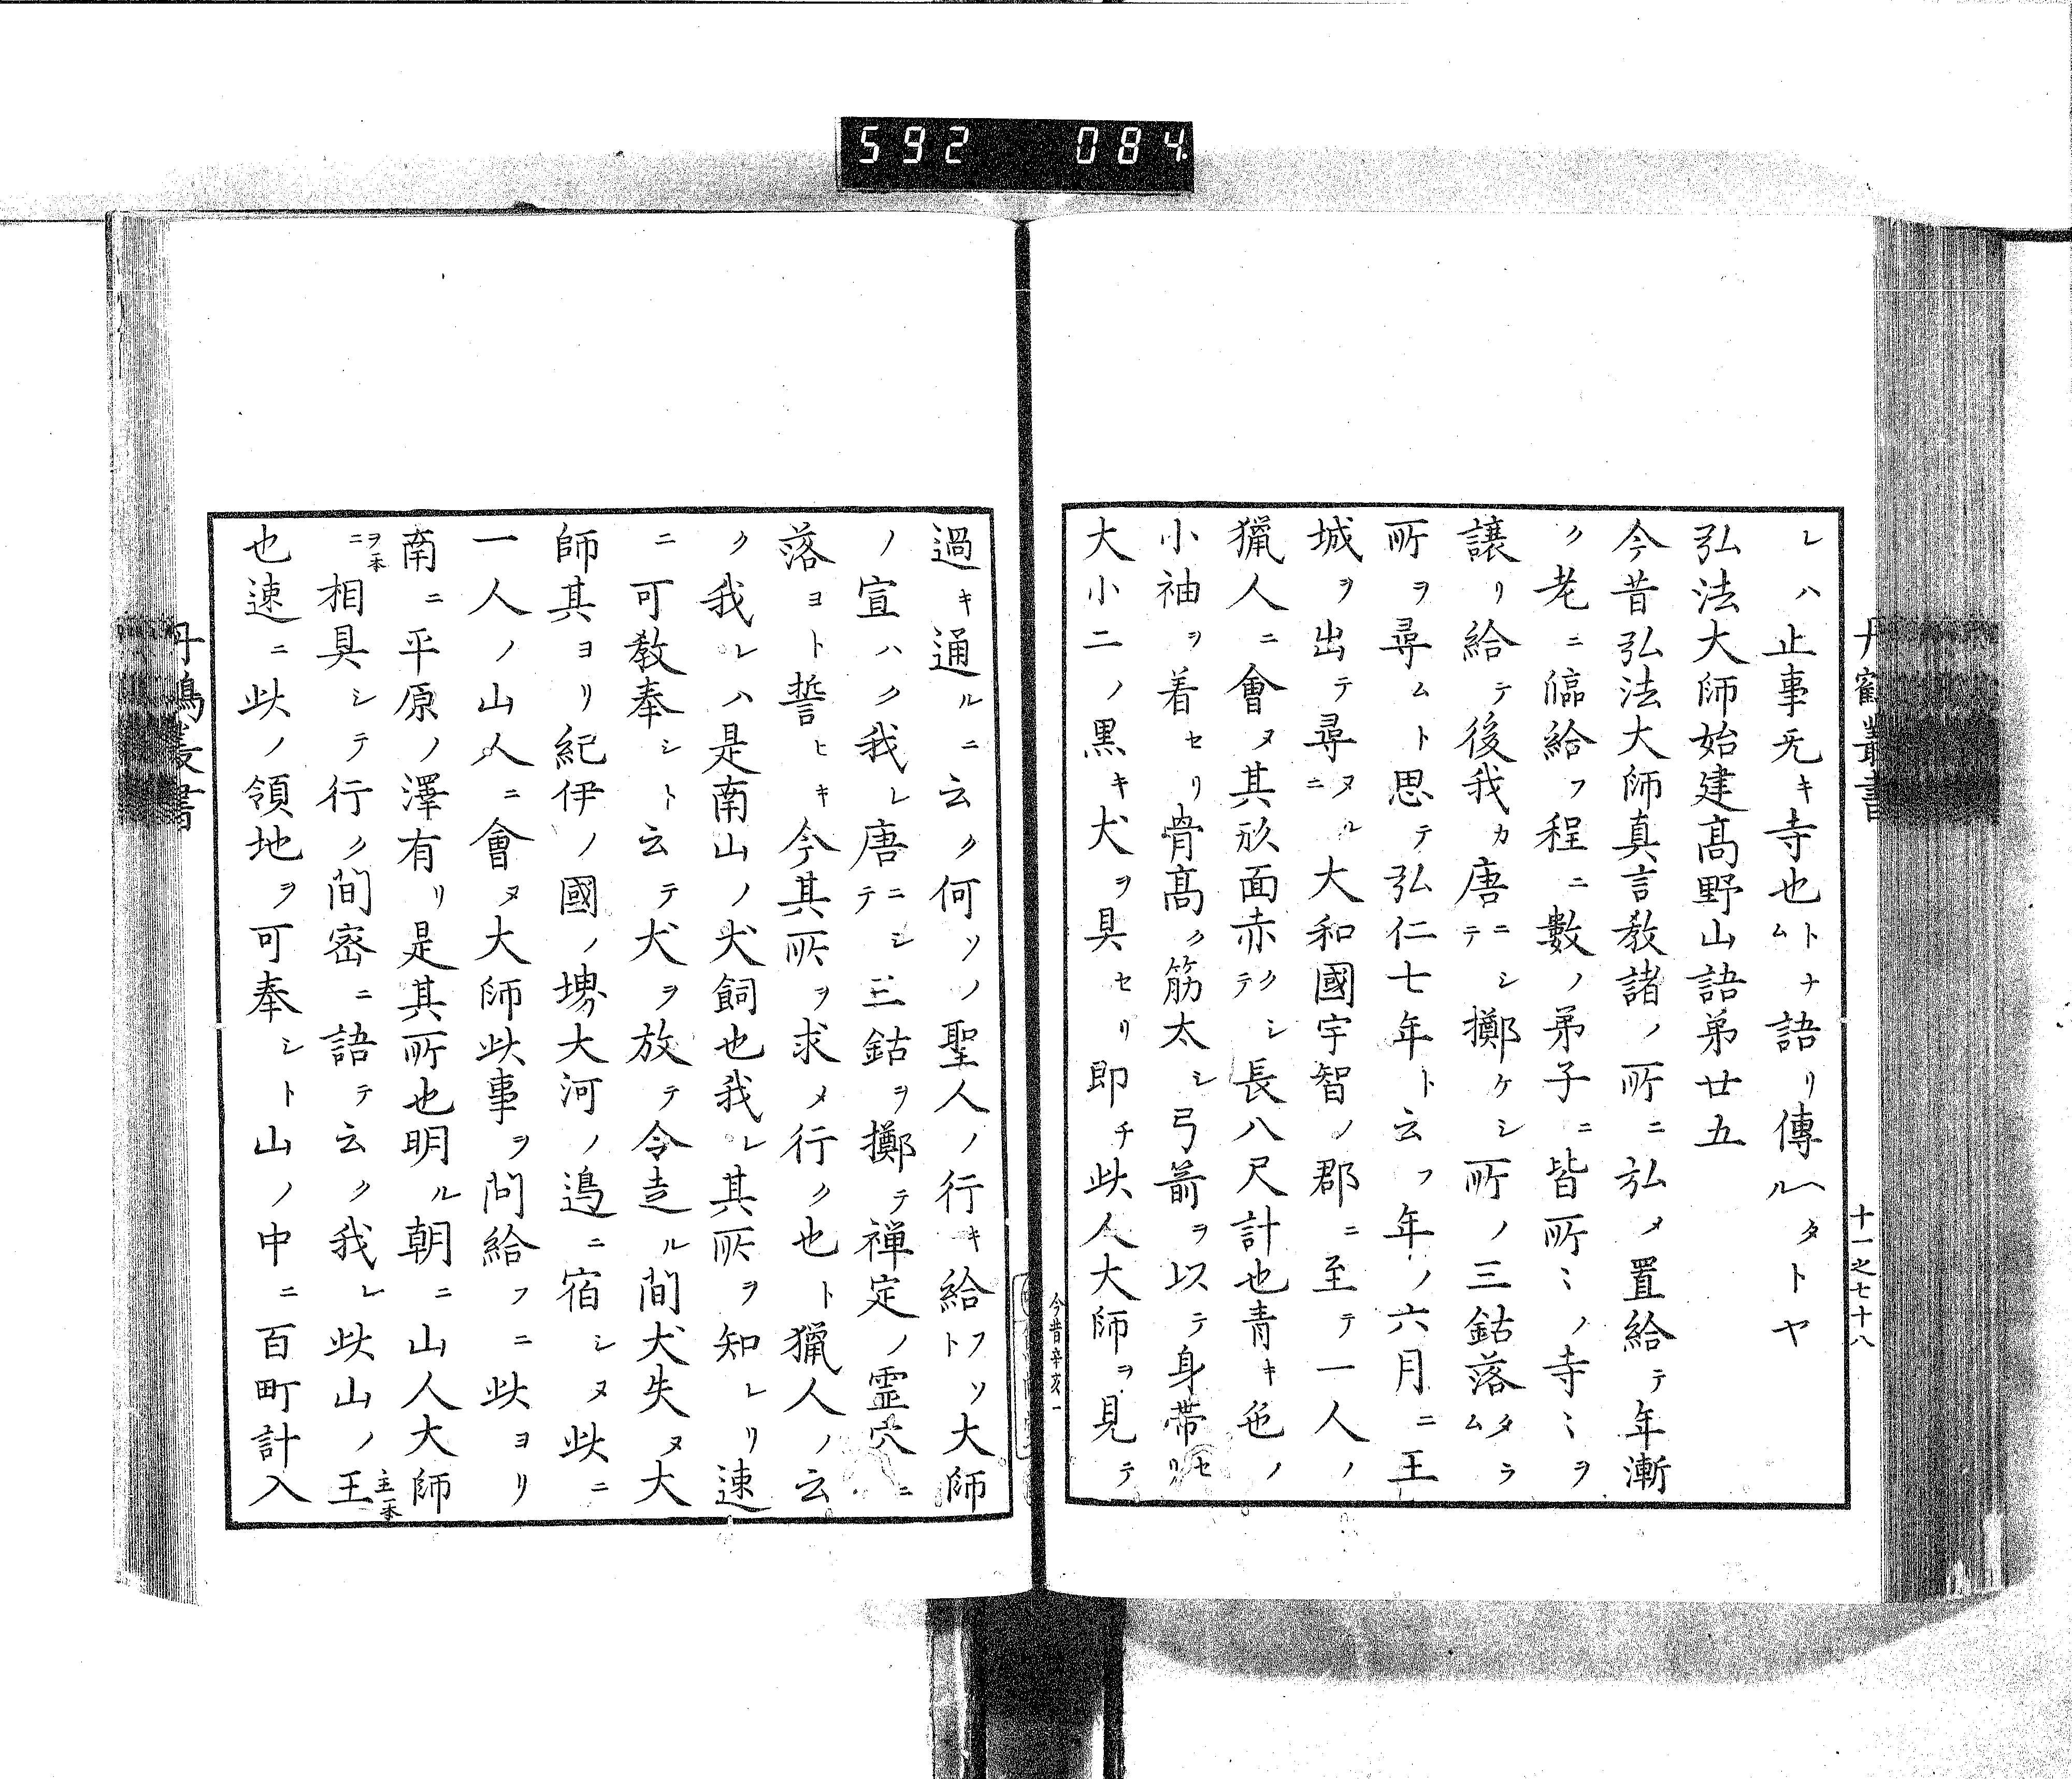 592 084
丹鶴叢書
十一之七十八
レハ止事旡キ寺也トナム語リ傳ヘタルトヤ
弘法大師始建髙野山語弟廿五
今昔弘法大師真言教諸ノ所ニ弘メ置給テ年漸
ク老ニ臨給フ程ニ數ノ弟子ニ皆所ミノ寺ミヲ
譲リ給テ後我カ唐ニシテ擲ケシ所ノ三鈷落タラム
所ヲ尋ムト思テ弘仁七年ト云フ年ノ六月ニ王
城ヲ出テ尋ヌルニ大和國宇智ノ郡ニ至テ一人ノ
獵人ニ會ヌ其形面赤クシテ長八尺計也青キ色ノ
小袖ヲ着セリ骨髙ク筋太シ弓箭ヲ以テ身帶セリ
大小二ノ黒キ犬ヲ具セリ即チ此人大師ヲ見テ
今昔辛亥一
過キ通ルニ云ク何ソノ聖人ノ行キ給フソト大師
ノ宣ハク我レ唐ニシテ三鈷ヲ擲テ禅定ノ霊穴ニ
落ヨト誓ヒキ今其所ヲ求メ行ク也ト獵人ノ云
ク我レハ是南山ノ犬飼也我レ其所ヲ知レリ速
ニ可教奉シト云テ犬ヲ放テ令走ル間犬失ヌ大
師其ヨリ紀伊ノ國ノ堺大河ノ邉ニ宿シヌ此ニ
一人ノ山人ニ會ヌ大師此事ヲ問給フニ此ヨリ
南ニ平原ノ澤有リ是其所也明ル朝ニ山人大師
ニヲ本相具シテ行ク間密ニ語テ云ク我レ此山ノ王主一本
也速ニ此ノ領地ヲ可奉シト山ノ中ニ百町計入
丹鶴叢書